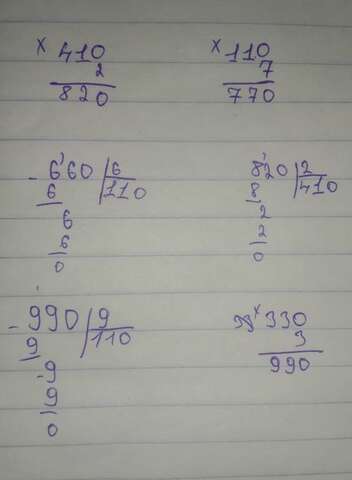 × 410
2
820
× 110
7
770
- 660 | 6
6 110
6
6
0
820 | 2
8 410
2
2
0
- 990 | 9
9 110
- 9
9
0
× 330
3
990